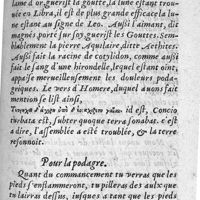 lame d'or guerist la goutte, la lune estant trouuee
en Libra, il est de plus grande efficace la lune
estant au signe de Leo. Aussi l'aimant, dit
magnés porté sur soy guerist les Gouttes. Semblablement
la pierre Aquilaire, ditte Aethites.
Aussi fait la racine de cotylidon, comme aussi
fait le sang d'une hirondelle, lequel estant oint,
appaise merueilleusement les douleurs podagriques.
Le vers d'Homere, duquel auons fait
mention se list ainsi,
id est, Concio
turbata est, subter quoque terra sonabat. c'est
à dire, l'assemblée a esté troublée, & la terre
resonnoit.
Pour la podagre.
Quant du commancement tu verras que les
pieds s'enflammeront, tu pilleras des aulx que
tu lairras dessus, iusques a tant que les pieds